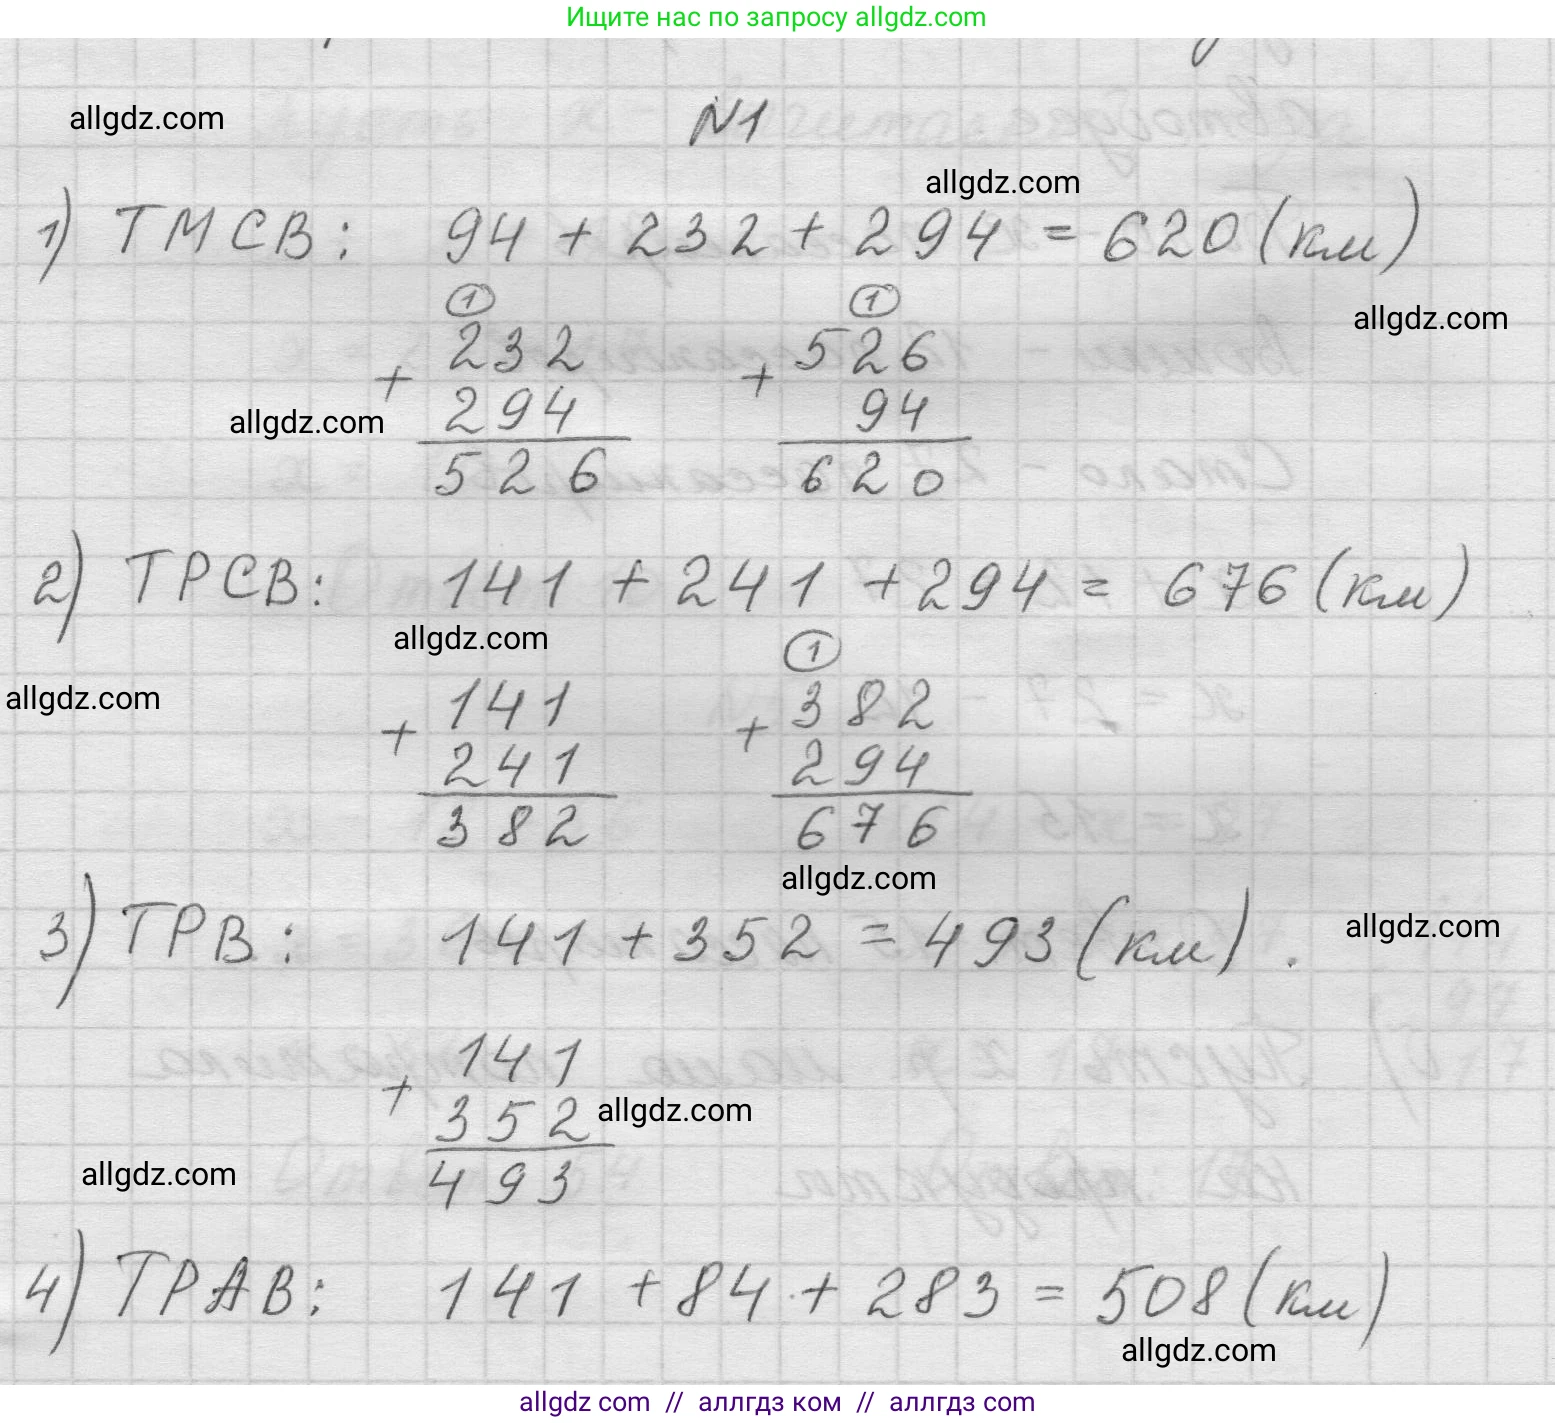 Ищите нас по запросу allgdz.com
allgdz.com
N1
allgdz.com
1) ТМСВ: 94 + 232 + 294 = 620 (км)
allgdz.com
1 1
232 526
+ +
294 94
allgdz.com
526 620
2) ТРСВ: 141 + 241 + 294 = 676 (км)
allgdz.com
1
allgdz.com
141 382
+ +
241 294
382 676
allgdz.com
3) ТРВ: 141 + 352 = 493 (км).
allgdz.com
141
+
352
allgdz.com
493
allgdz.com
4) ТРАВ: 141 + 84 + 283 = 508 (км)
allgdz.com
allgdz com // аллгдз ком // аллгдз com